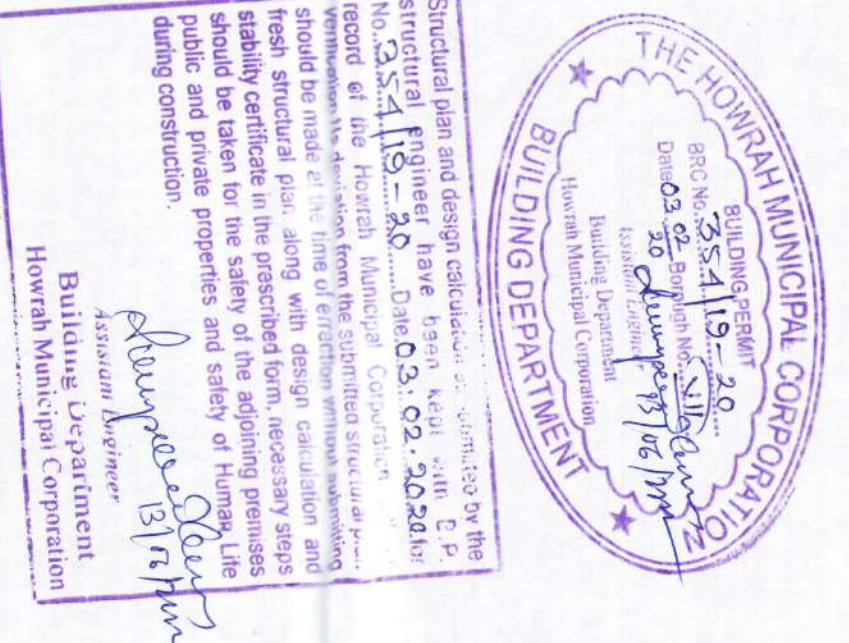 THE HOWRAH MUNICIPAL CORPORATION
BUILDING PERMIT
BRC No. 354/19-20
Date 03.02.20 Borough No. VII
Assistant Engineer
Building Department
Howrah Municipal Corporation
BUILDING DEPARTMENT
Structural plan and design calculation submitted by the
structural engineer have been kept with B.P.
No. 354/19-20 Date 03.02.2020 for
record of the Howrah Municipal Corporation
verification. No deviation from the submitted structural plan
should be made at the time of erraction without submitting
fresh structural plan along with design calculation and
stability certificate in the prescribed form, necessary steps
should be taken for the safety of the adjoining premises
public and private properties and safety of Human Life
during construction.
13/06/
Assistant Engineer
Building Department
Howrah Municipal Corporation